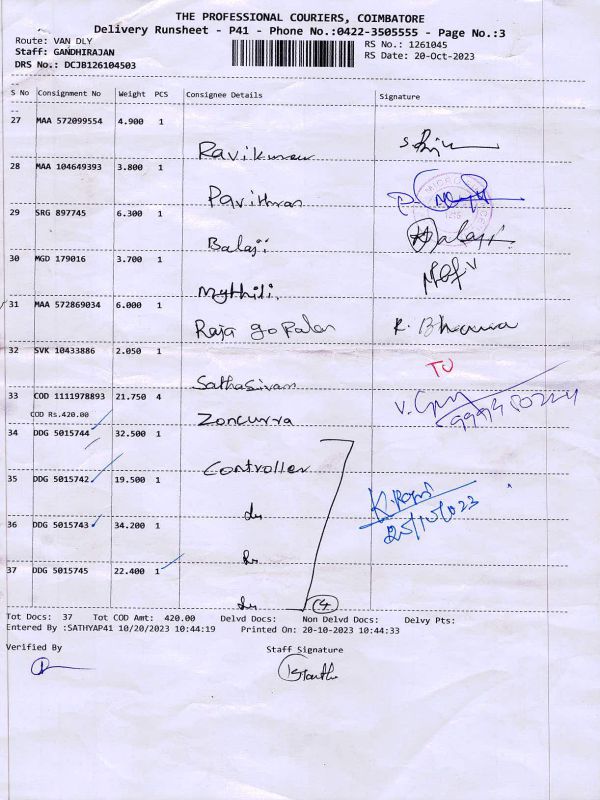 THE PROFESSIONAL COURIERS, COIMBATORE
Delivery Runsheet - P41 - Phone No.:0422-3505555 - Page No.:3
Route: VAN DLY RS No.: 1261045
Staff: GANDHIRAJAN RS Date: 20-Oct-2023
DRS No.: DCJB126104503
S No Consignment No Weight PCS Consignee Details Signature
27 MAA 572099554 4.900 1
Ravikumar
28 MAA 104649393 3.800 1
Pavithran
29 SRG 897745 6.300 1
Balaji Balaji
30 MGD 179016 3.700 1
Mythili.
31 MAA 572869034 6.000 1
Raja gopalan K. Bhavna
32 SVK 10433886 2.050 1
TU
Sathasivam
33 COD 1111978893 21.750 4
COD Rs.420.00
Zoncurra
34 DDG 5015744 32.500 1
Controller
35 DDG 5015742 19.500 1
36 DDG 5015743 34.200 1
37 DDG 5015745 22.400 1
(4)
Tot Docs: 37 Tot COD Amt: 420.00 Delvd Docs: Non Delvd Docs: Delvy Pts:
Entered By :SATHYAP41 10/20/2023 10:44:19 Printed On: 20-10-2023 10:44:33
Verified By Staff Signature